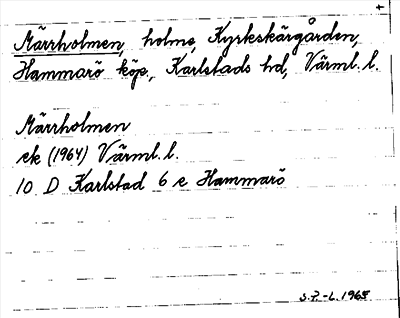 Märrholmen, holme, Kyrkskärgården,
Hammarö köp., Karlstads hd, Värml. l.
Märrholmen
ek (1964) Värml. l.
10 D Karlstad 6 e Hammarö
S.P.-L. 1965